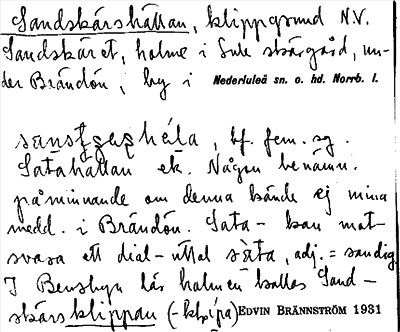 Sandskärshällan, klippgrund N.V.
Sandskäret, holme i Sule skärgård, un-
der Brändön, by i Nederluleå sn. o. hd. Norrb. l.
hf. fem. sg.
Satahällan ek. Någon benämn.
påminnande om denna kände ej mina
medd. i Brändön. Sata- kan mot-
svara ett dial-uttal sàta, adj. = sandig
I Bensbyn lär holmen kallas Sand-
skärsklippan (-klipa) EDVIN BRÄNNSTRÖM 1931